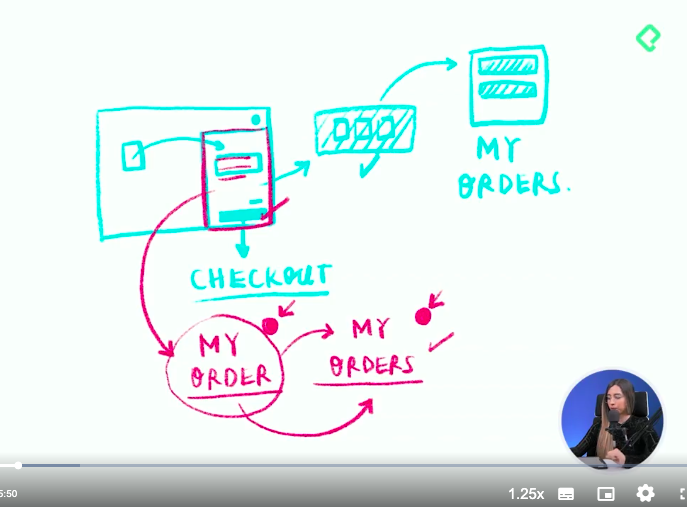 MY
ORDERS.
CHECKOUT
MY
ORDER
MY
ORDERS
5:50
1.25x